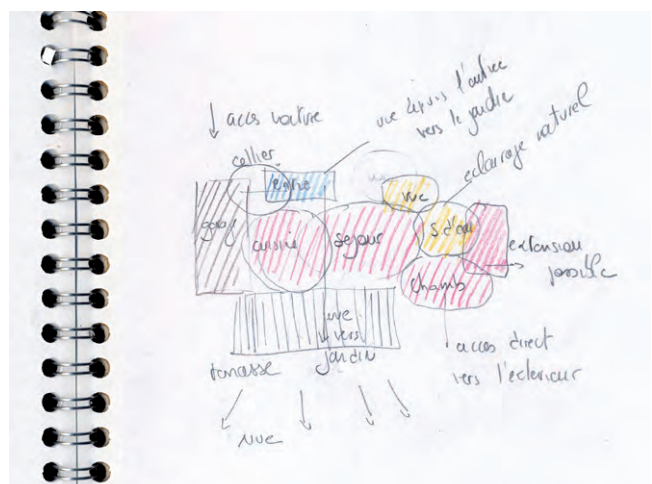 acces voiture
vue depuis l'entree
vers le jardin
eclairage naturel
cellier
entre
wc
garag
cuisine
sejour
s d'eau
extension
possible
chamb
vue
vers
jardin
terrasse
acces direct
vers l'exterieur
vue